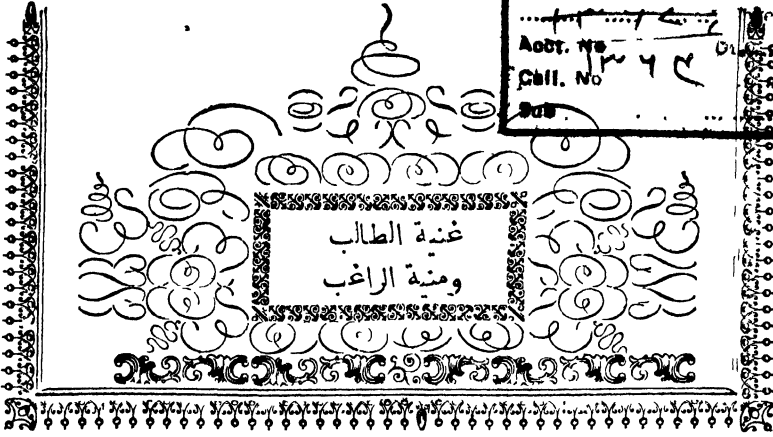 Acct. No
Call. No ١٣٦٤
Sub
غنية الطالب
ومنية الراغب